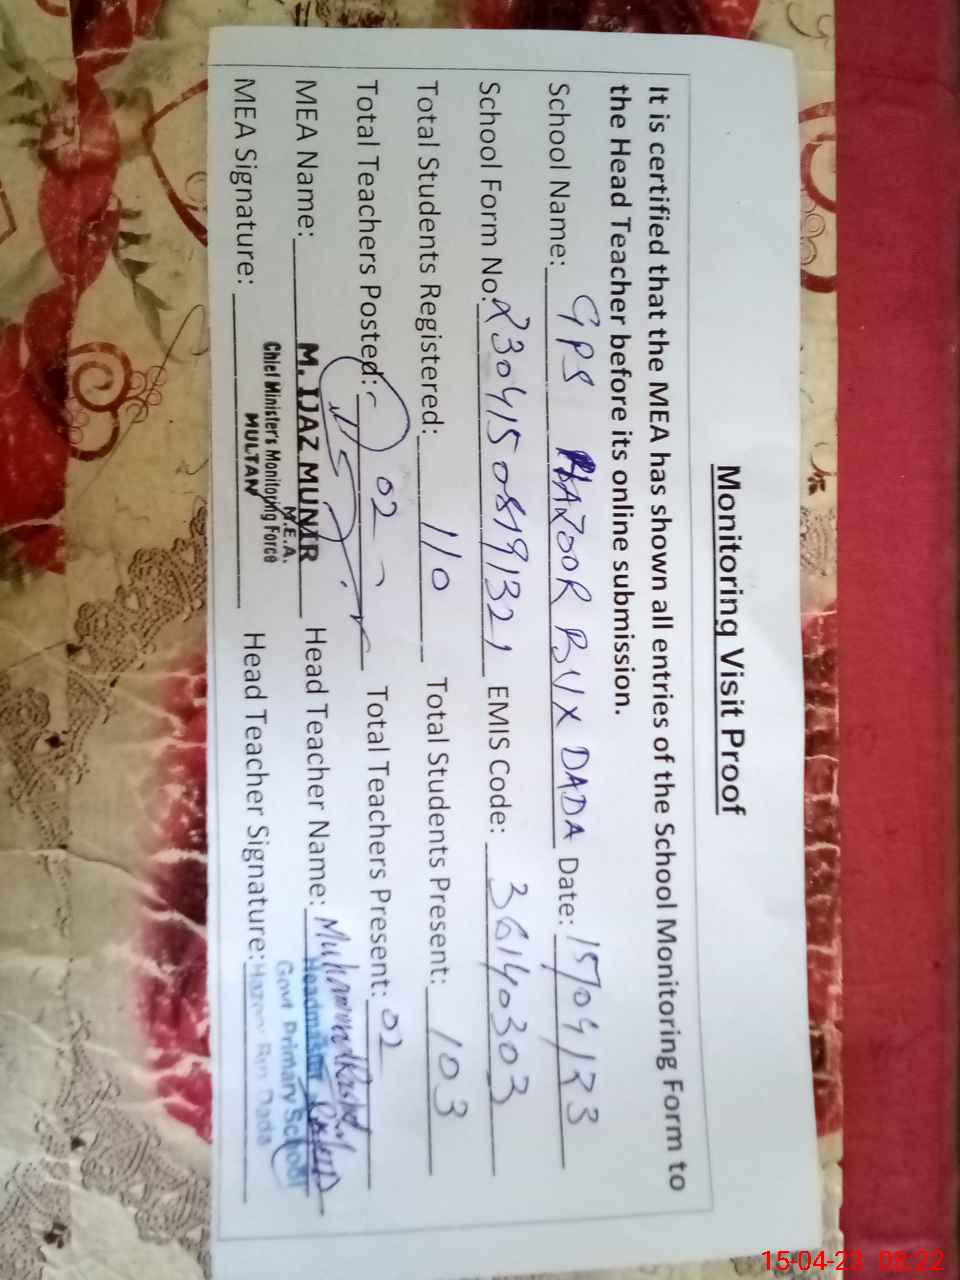 Monitoring Visit Proof
It is certified that the MEA has shown all entries of the School Monitoring Form to
the Head Teacher before its online submission.
School Name: GPS HAZOOR BUX DADA Date: 15/04/23
School Form No: 23041508191321 EMIS Code: 36140303
Total Students Registered: 110 Total Students Present: 103
Total Teachers Posted: 02 Total Teachers Present: 02
MEA Name: M. IJAZ MUNIR Head Teacher Name: Muhammad Rashid
M.E.A.
Chief Minister's Monitoring Force
MULTAN
Headmaster
Govt Primary School
MEA Signature: Head Teacher Signature: Dada
15-04-23 08:22